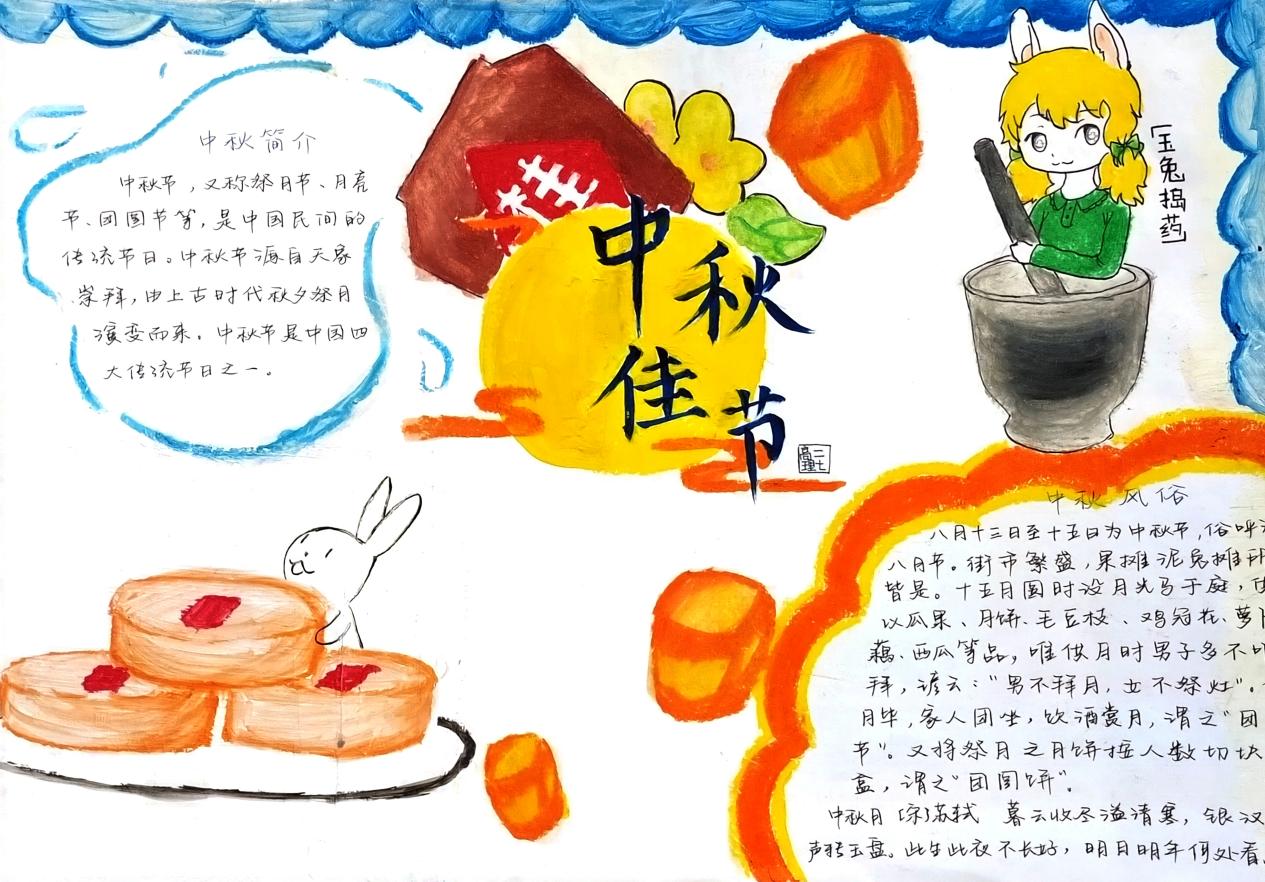 中秋简介
中秋节，又称祭月节、月亮
节、团圆节等，是中国民间的
传统节日。中秋节源自天象
崇拜，由上古时代秋夕祭月
演变而来。中秋节是中国四
大传统节日之一。
中秋
佳节
高二
理七
[玉兔捣药]
中秋风俗
八月十三日至十五日为中秋节，俗呼
八月节。街市繁盛，果摊泥兔摊所
皆是。十五月圆时设月光马于庭，供
以瓜果、月饼、毛豆枝、鸡冠花、萝卜
藕、西瓜等品，唯供月时男子多不叩
拜，谚云：“男不拜月，女不祭灶”。
月毕，家人团坐，饮酒赏月，谓之“团
节”。又将祭月之月饼按人数切块
盒，谓之“团圆饼”。
中秋月 [宋]苏轼 暮云收尽溢清寒，银汉
声转玉盘。此生此夜不长好，明月明年何处看。